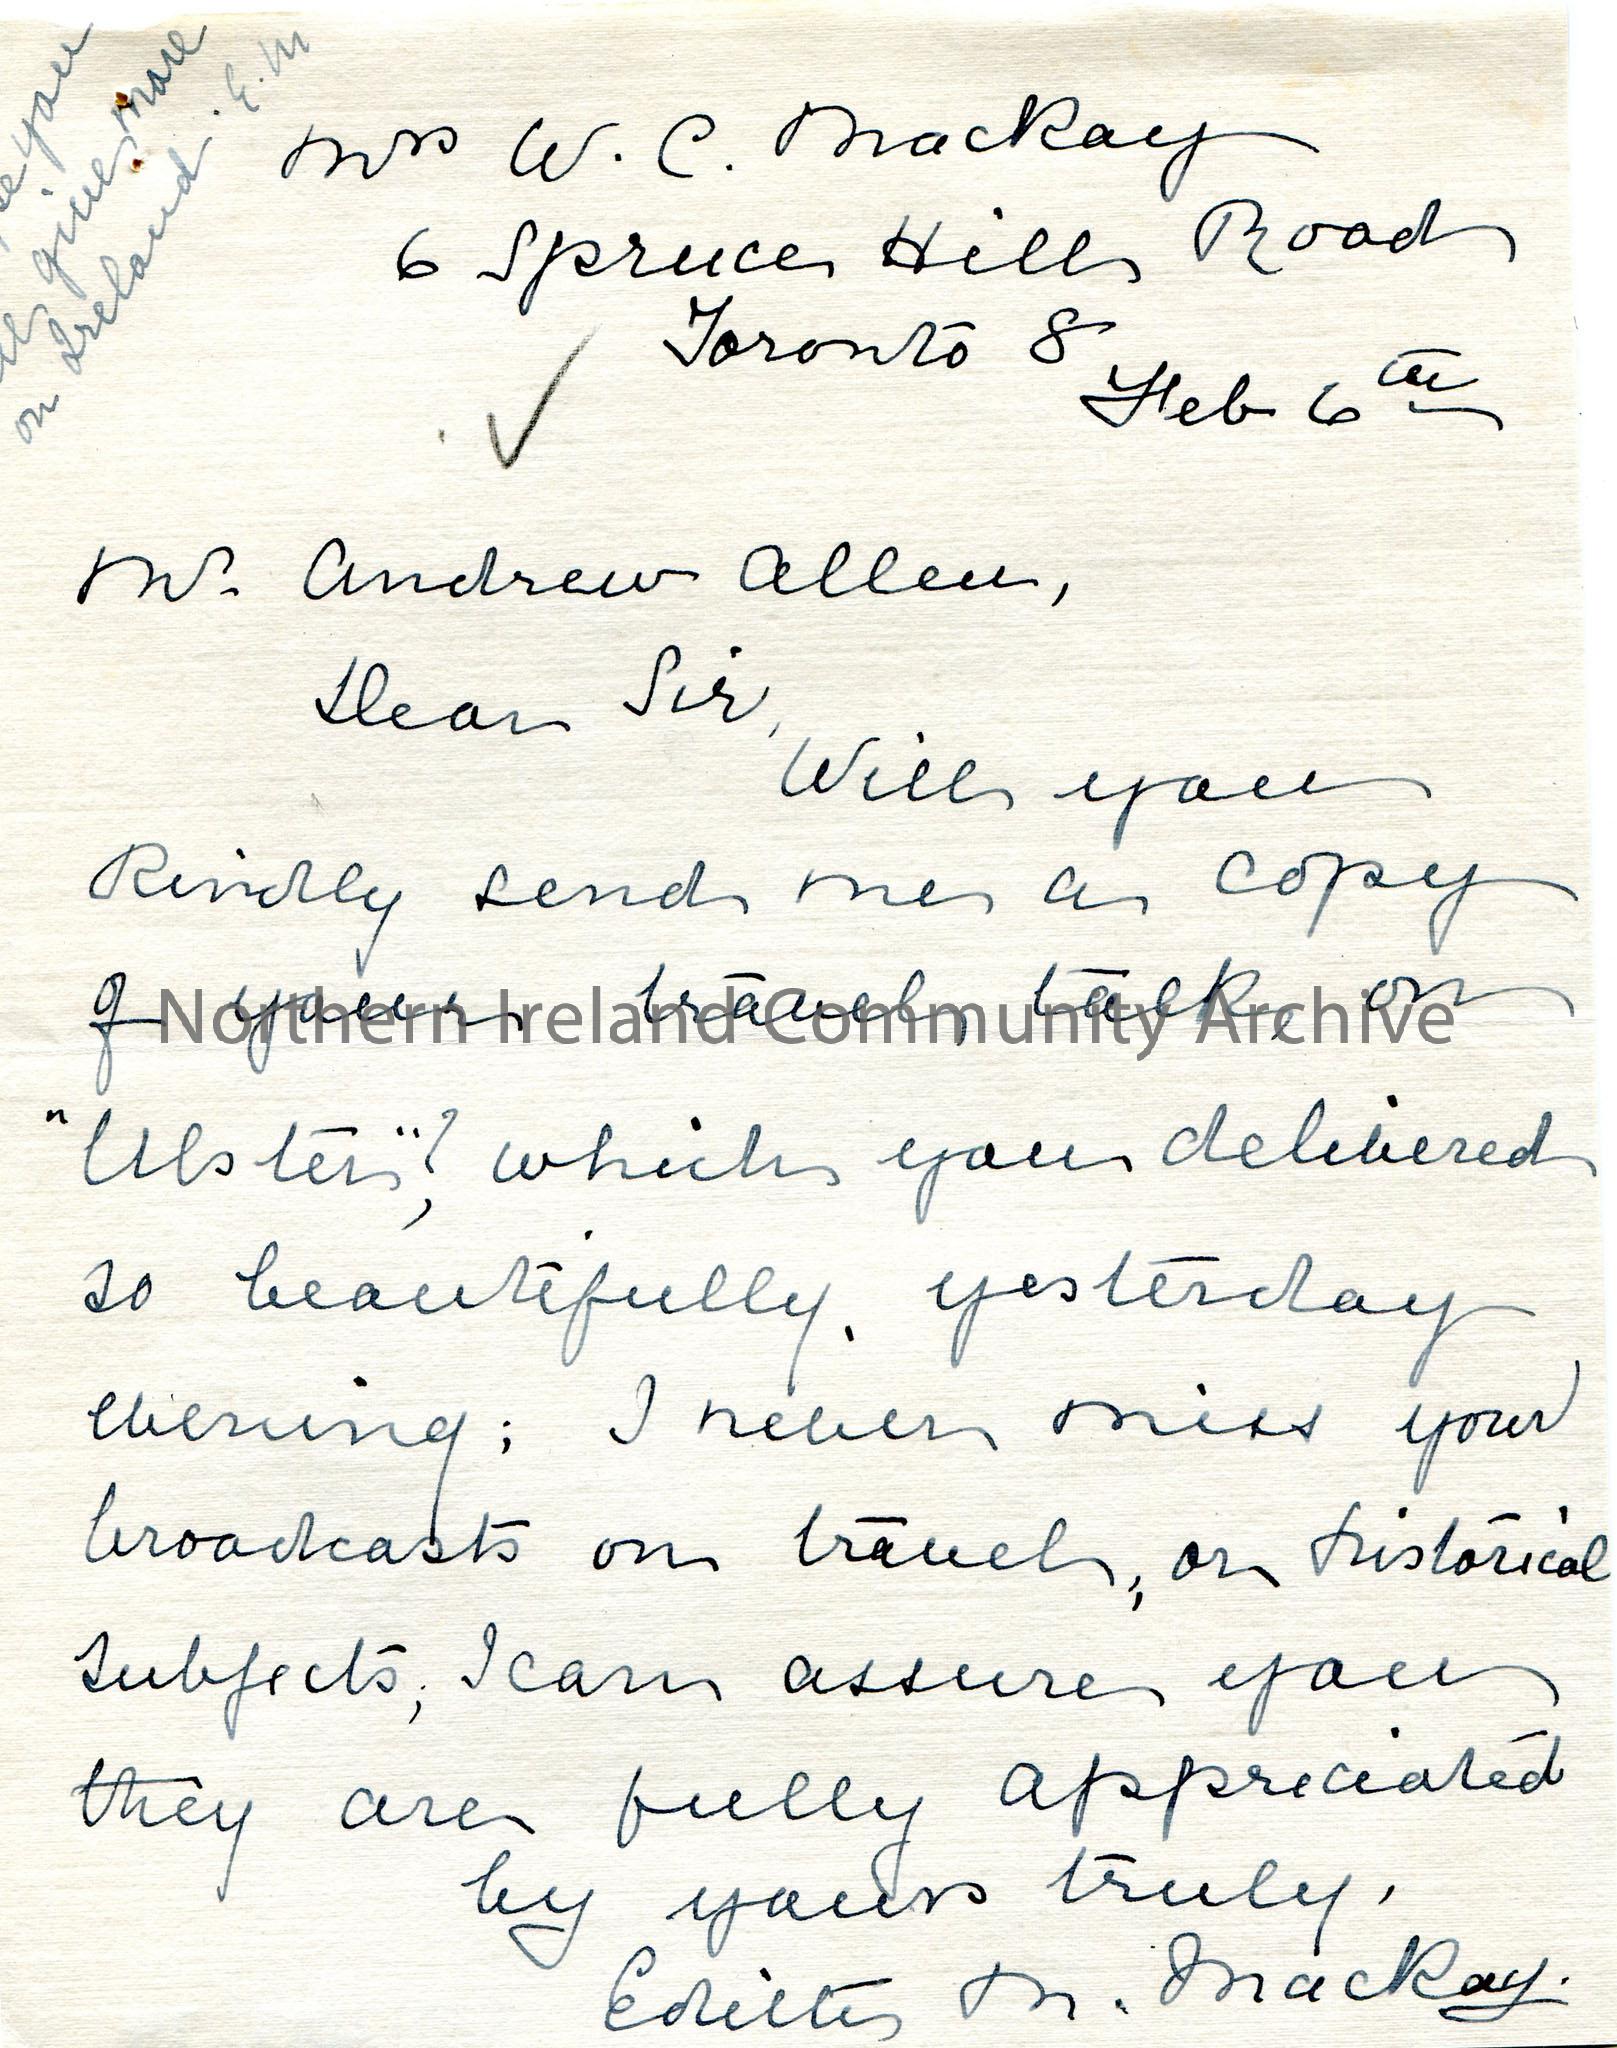 Mrs W. C. MacKay
6 Spruce Hill Road
Toronto 8
Feb 6th
Mr. Andrew Allen,
Dear Sir,
Will you
kindly send me a copy
of your travel talk on
"Ulster"?, which you delivered
so beautifully. yesterday
evening; I never miss your
broadcasts on travel, or historical
subjects; I can assure you
they are fully appreciated
by yours truly,
Edith M. MacKay.
you
give more
on Ireland. E.M
Northern Ireland Community Archive